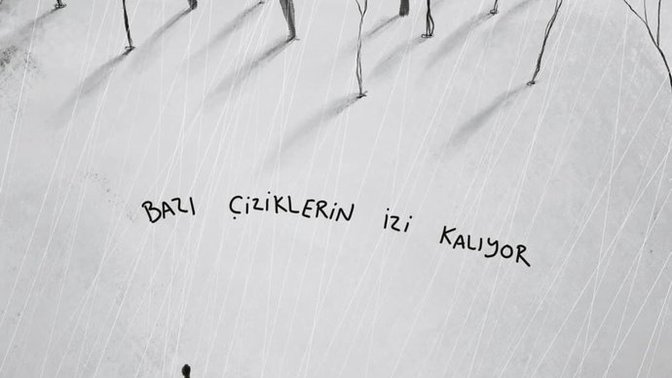 BAZI ÇİZİKLERİN İZİ KALIYOR